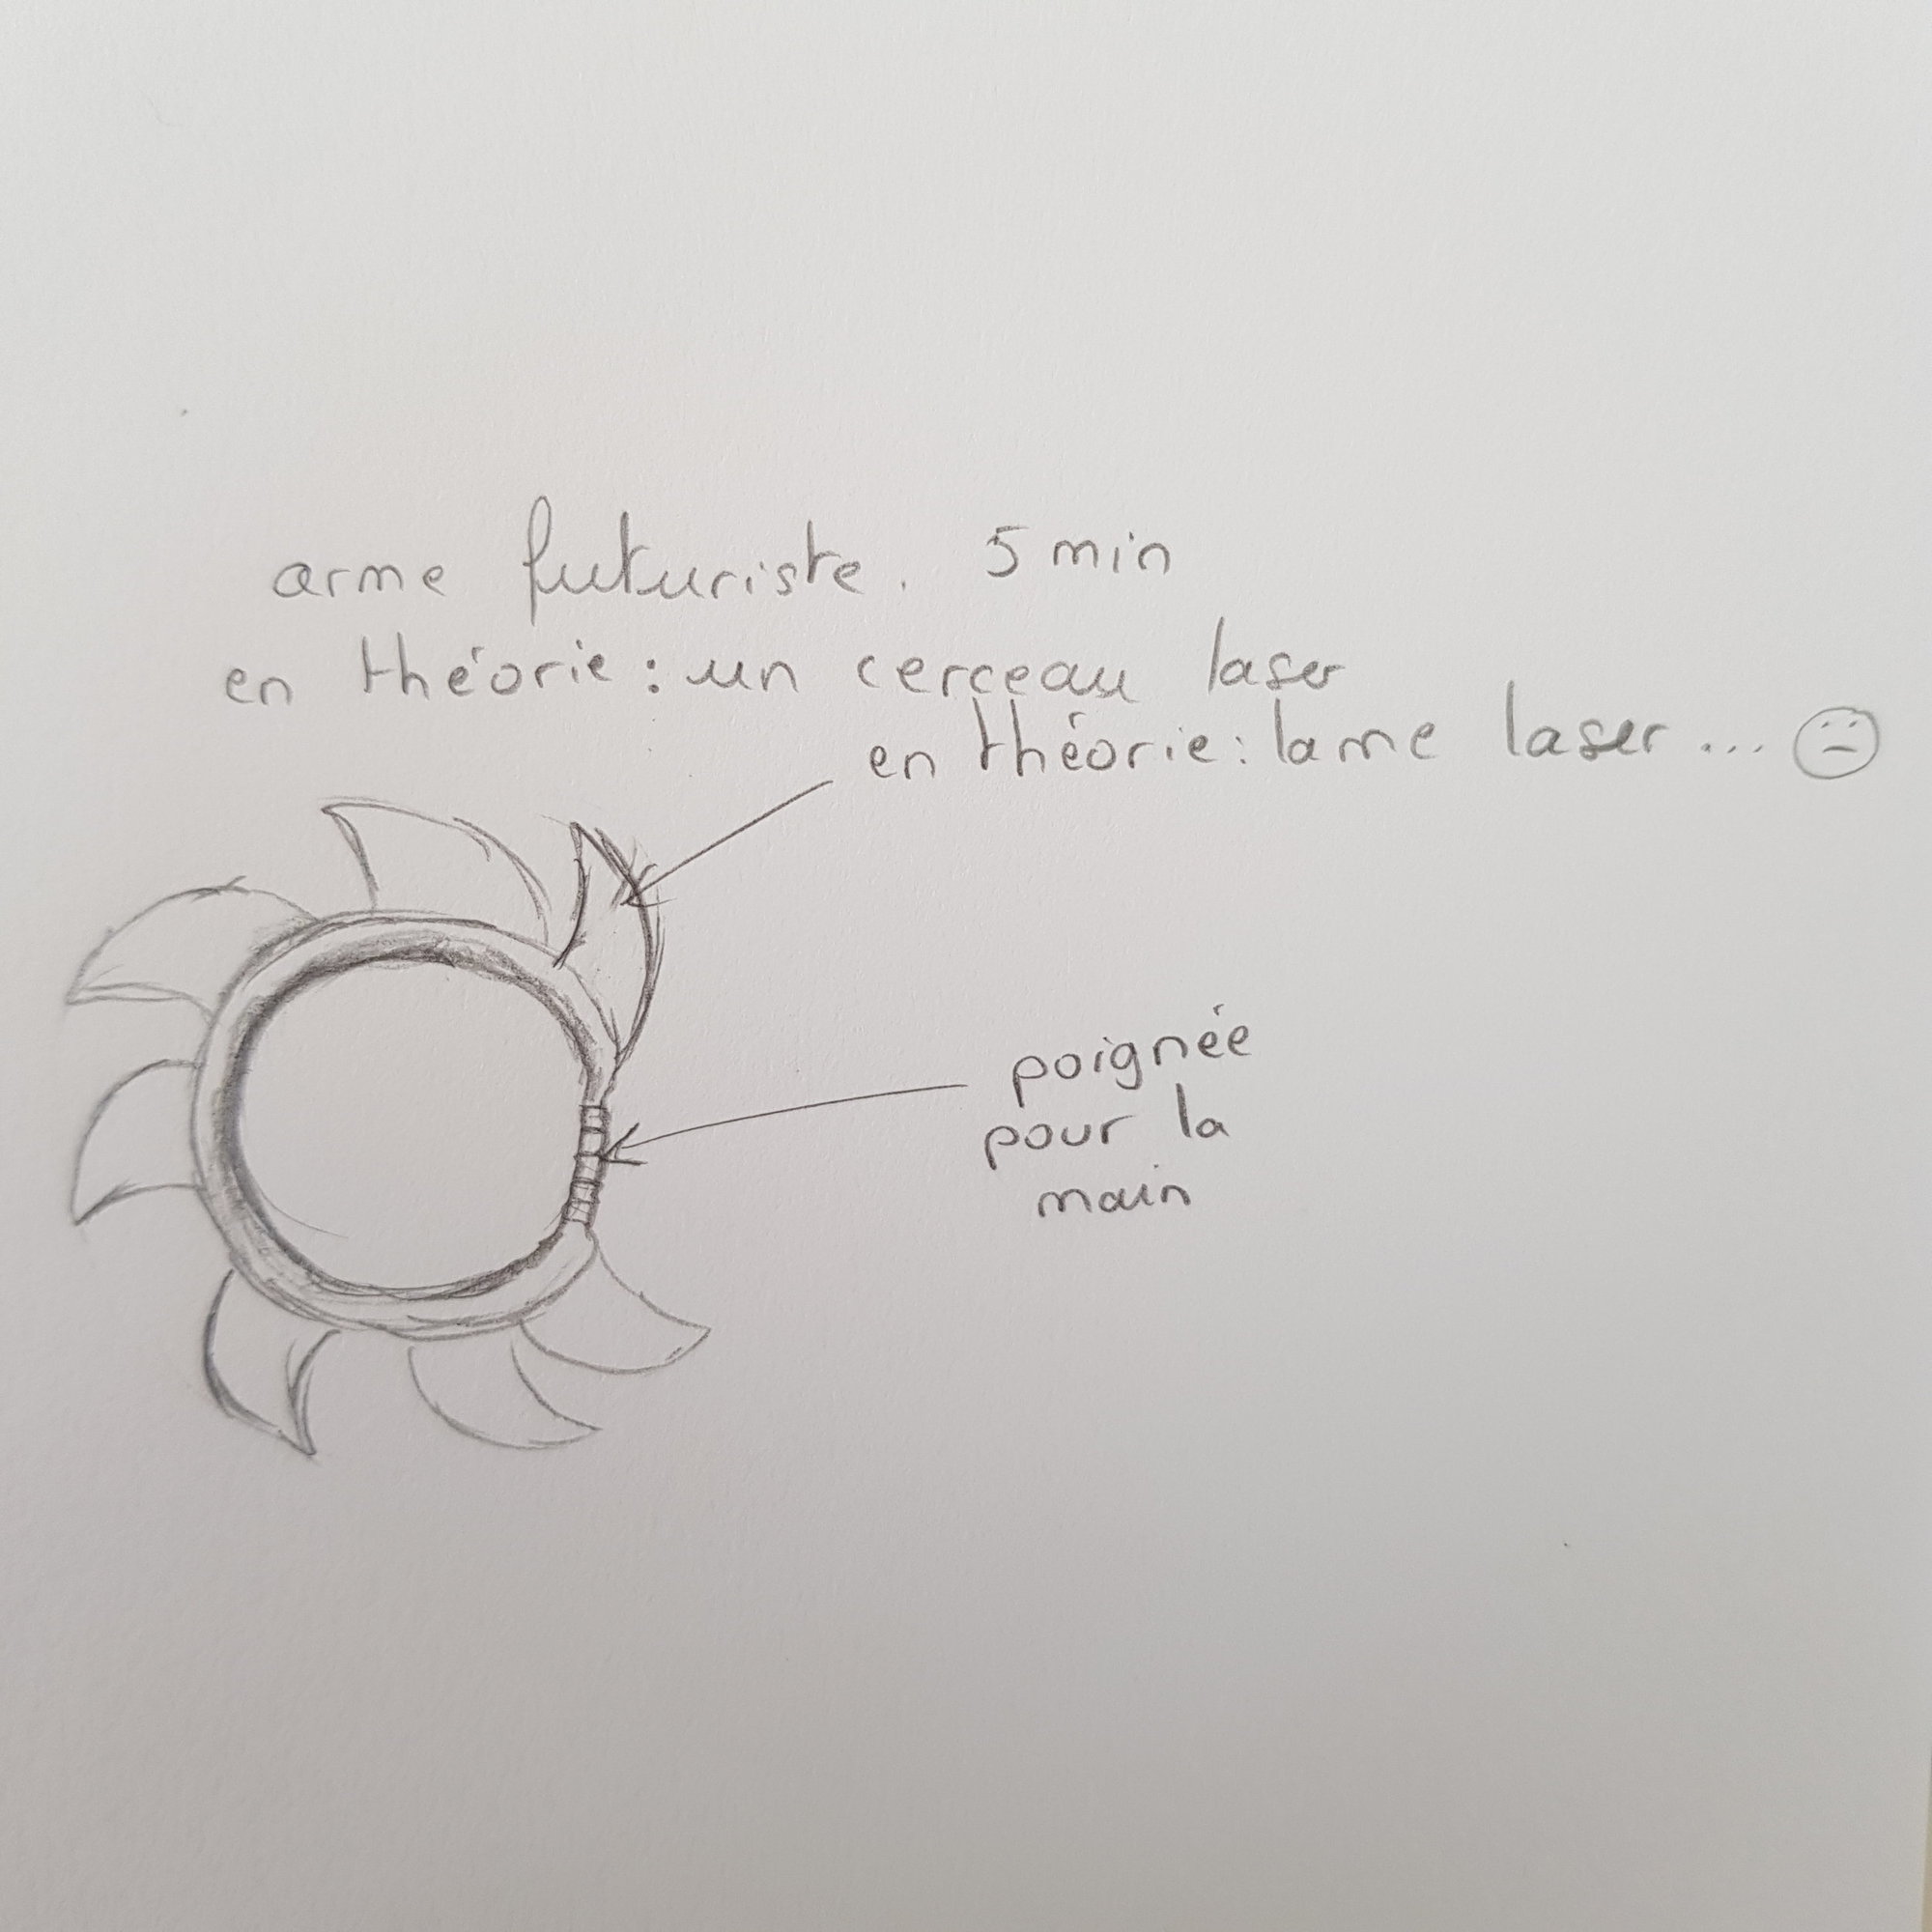 arme futuriste. 5 min
en théorie : un cerceau laser
en théorie : lame laser...
poignée
pour la
main